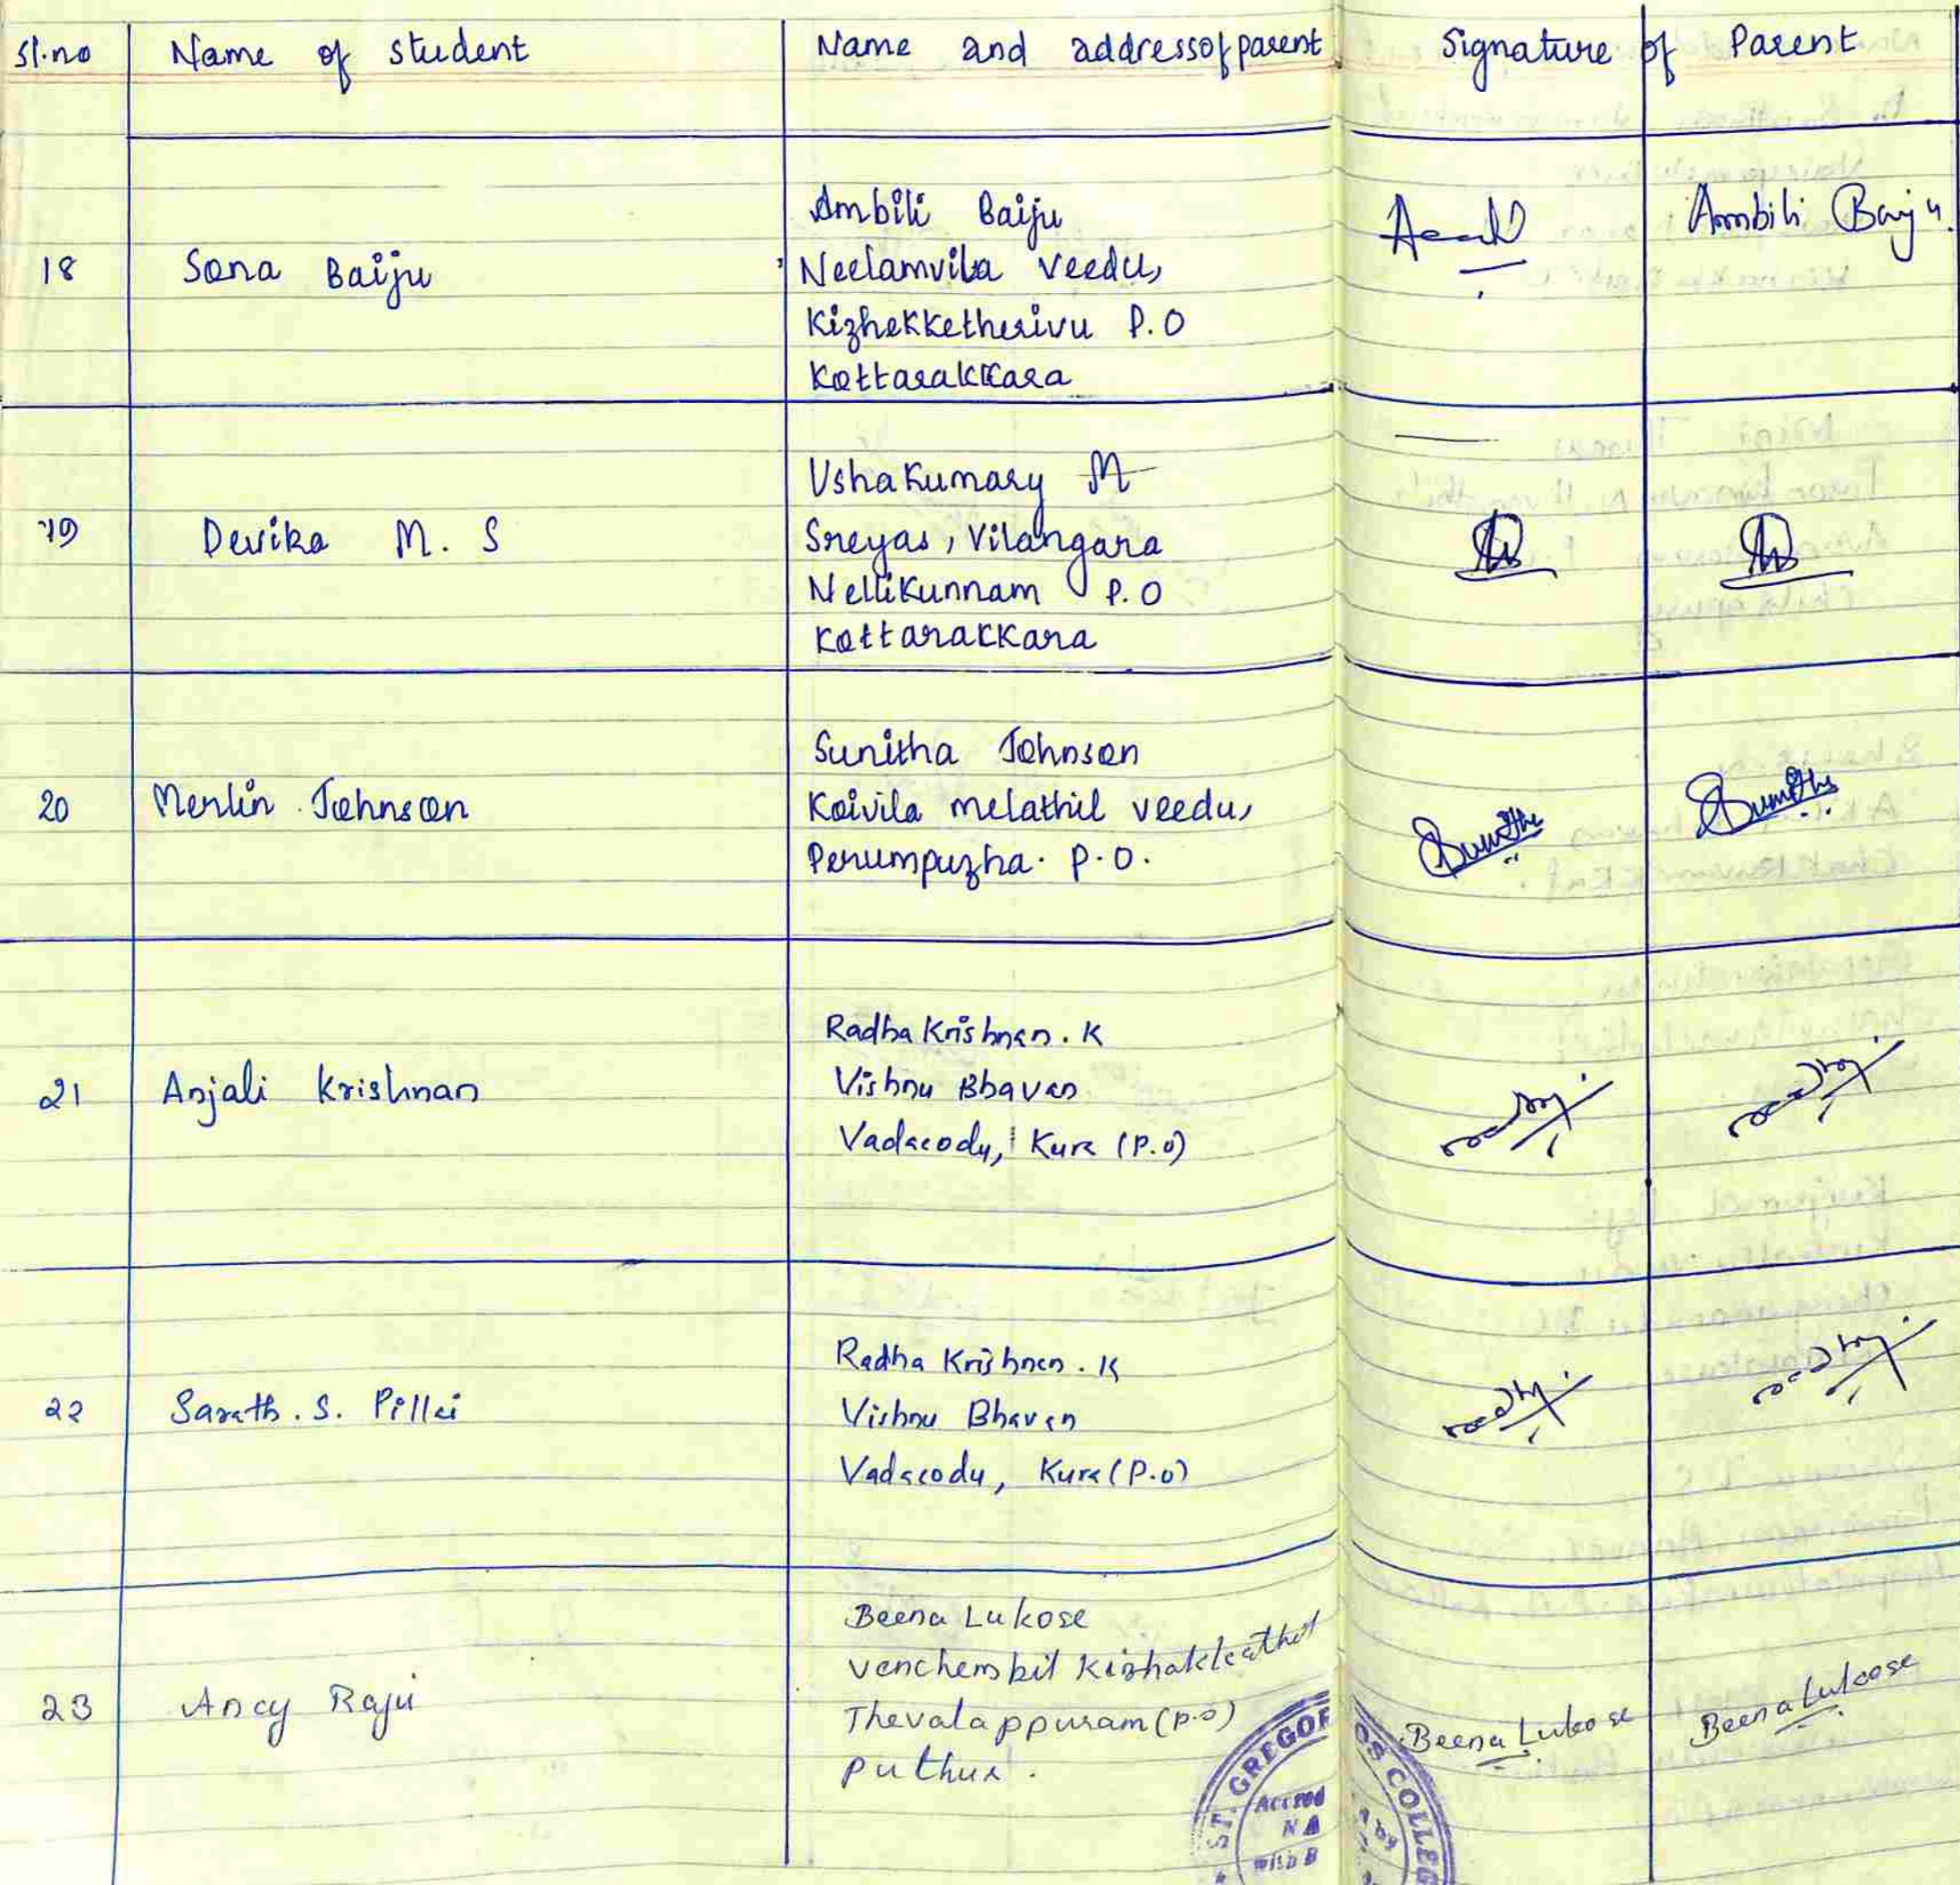 Sl.no Name of student Name and address of parent Signature of Parent
18 Sona Baiju
Ambili Baiju
Neelamvila veedu,
Kizhekketherivu P.O
Kottarakkara
Ambili Baiju.
19 Devika M. S
Ushakumary M
Sreyas, Vilangara
Nellikunnam P.O
Kottarakkara
20 Merlin Johnson
Sunitha Johnson
Koivila melathil veedu,
Perumpuzha. P.O.
21 Anjali Krishnan
Radha Krishnan. K
Vishnu Bhavan
Vadacodu, Kura (P.O)
22 Sarath. S. Pillai
Radha Krishnan. K
Vishnu Bhavan
Vadacodu, Kura (P.O)
23 Ancy Raju
Beena Lukose
Thevalappuram (P.O)
Puthur.
Beena Lukose Beena Lukose
ST. GREGOR OS COLLEG
Accred by
NA
with B